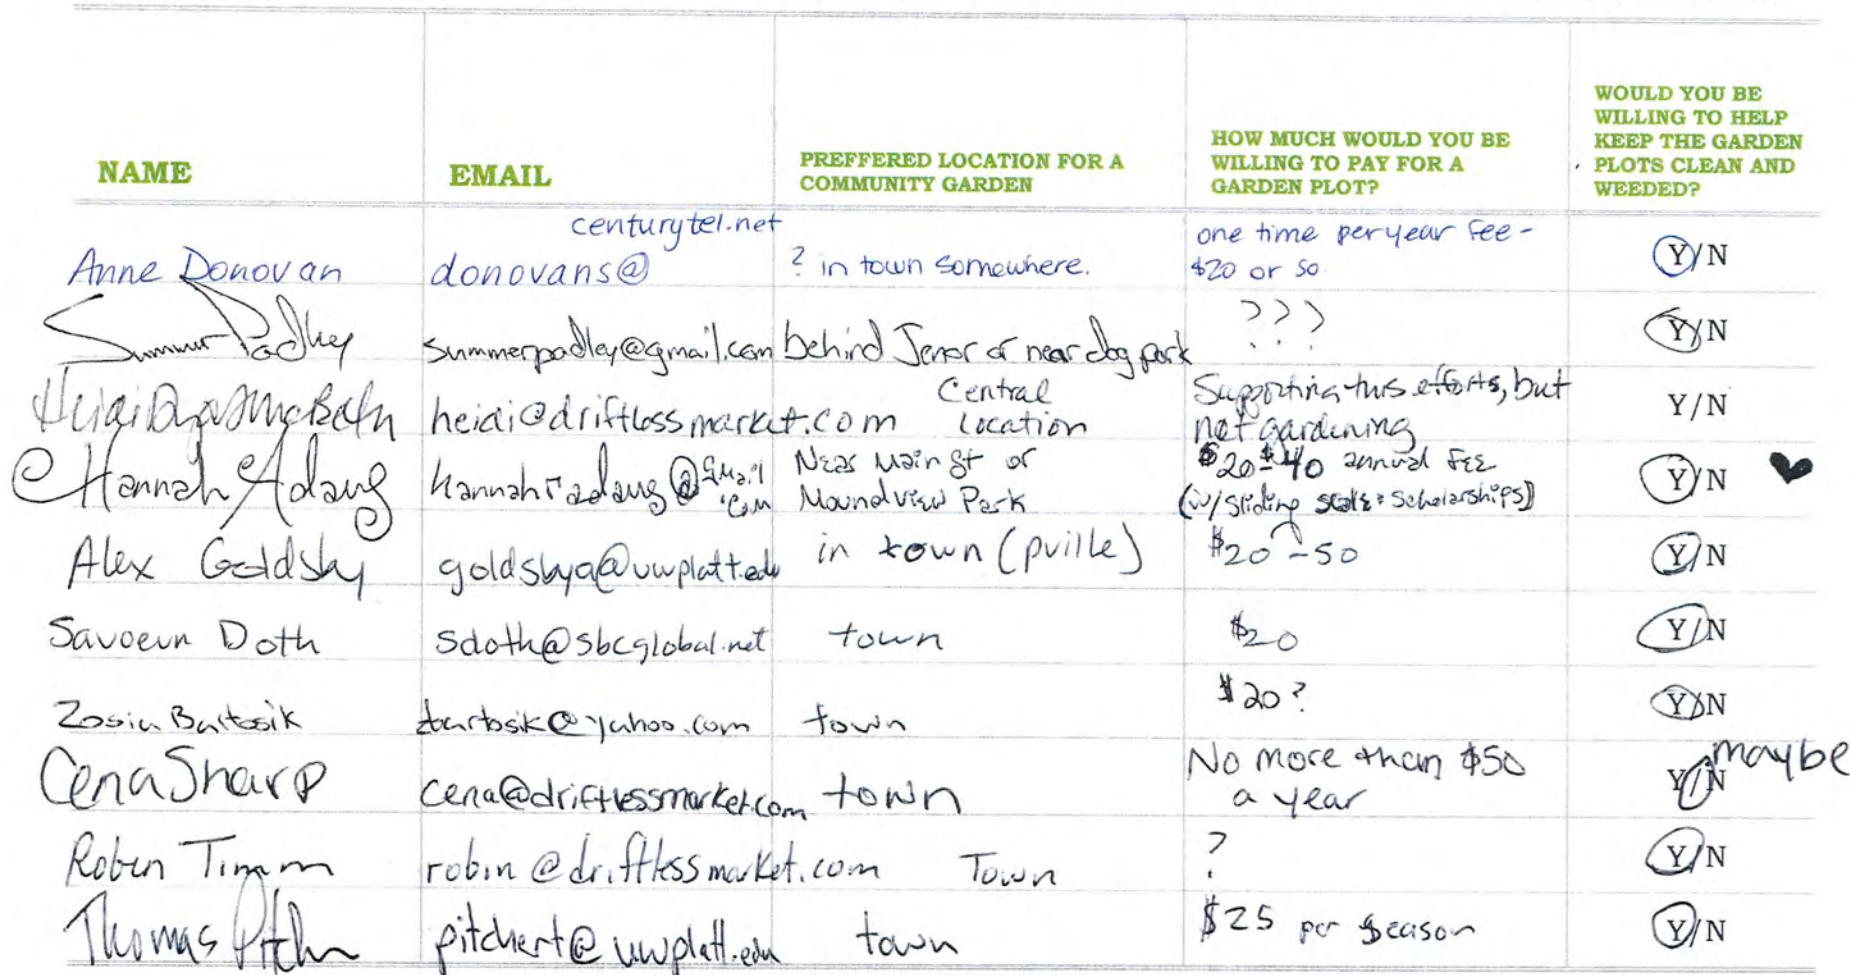 NAME
EMAIL
PREFFERED LOCATION FOR A
COMMUNITY GARDEN
HOW MUCH WOULD YOU BE
WILLING TO PAY FOR A
GARDEN PLOT?
WOULD YOU BE
WILLING TO HELP
KEEP THE GARDEN
PLOTS CLEAN AND
WEEDED?
Anne Donovan
centurytel.net
donovans@
? in town somewhere.
one time per year fee -
$20 or so
Y/N
Summer Padley
summerpadley@gmail.com
behind Jenor or near dog park
???
Y/N
Heidi
heidi@driftlessmarket.com
Central
Location
Supporting this efforts, but
not gardening
Y/N
Hannah Adang
hannahradang@gmail
.com
Near Main St or
Moundview Park
$20-$40 annual fee
(w/ sliding scale + scholarships)
Y/N
Alex Goldsby
goldsbya@uwplatt.edu
in town (pville)
$20-50
Y/N
Savoeun Doth
sdoth@sbcglobal.net
town
$20
Y/N
Zosia Bartosik
zbartosik@yahoo.com
town
$20?
Y/N
Cena Sharp
cena@driftlessmarket.com
town
No more than $50
a year
Y/N maybe
Robin Timm
robin@driftlessmarket.com
Town
?
Y/N
Thomas Pitcher
pitchert@uwplatt.edu
town
$25 per season
Y/N